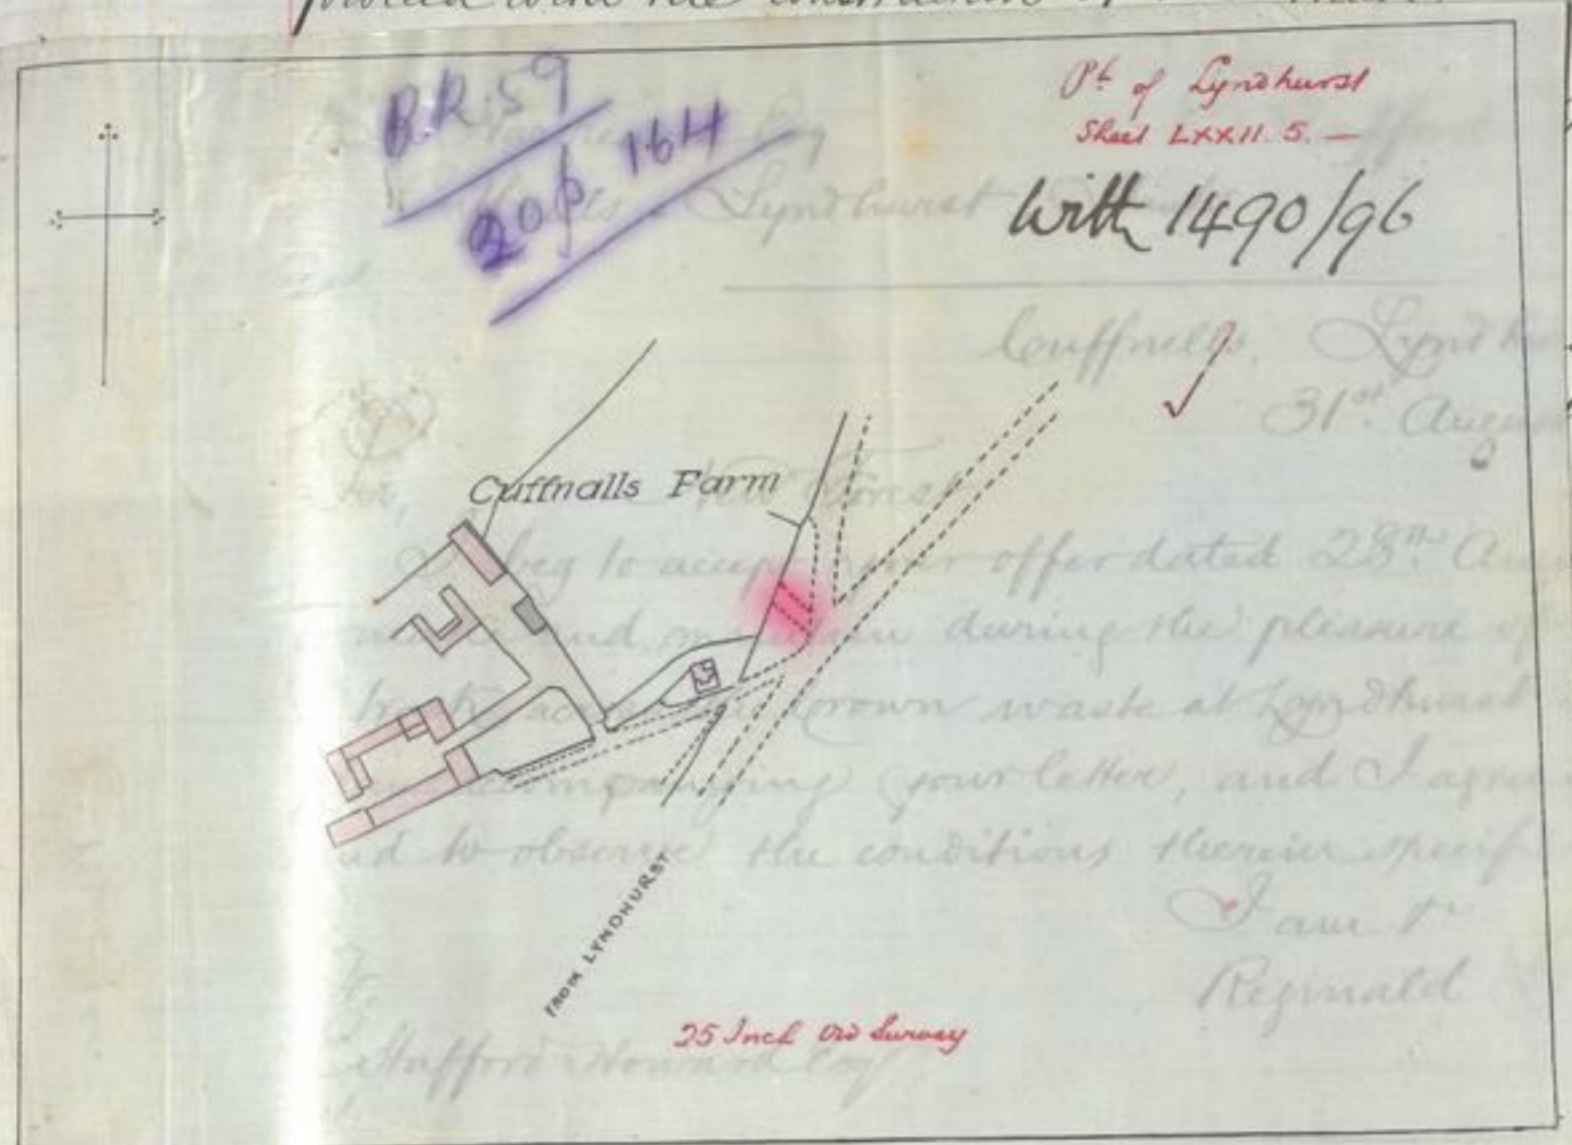 B.R. 59
20 p 164
Pt. of Lyndhurst
Sheet LXXII. 5. —
With 1490/96
Cuffnells, Lyndhu
31st Augus
Cuffnalls Farm
New Forest
beg to accept your offer dated 28th Au
and maintain during the pleasure of
Crown waste at Lyndhurst
accompanying your letter, and I agree
to observe the conditions therein specif
I am &
Reginald
FROM LYNDHURST
25 Inch Ord Survey
Stafford Howard Esq